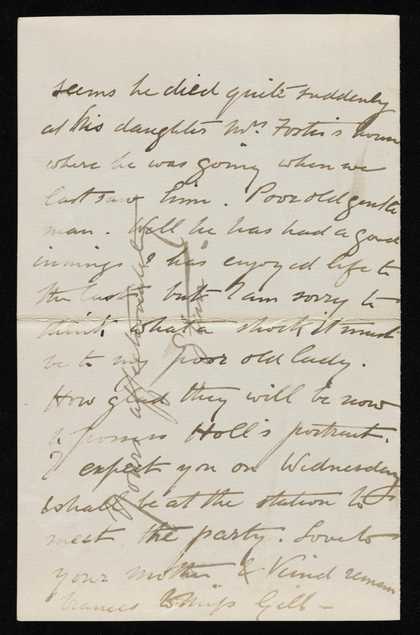 seems he died quite suddenly
at his daughter Mrs Foster's house
where he was going when we
last saw him. Poor old gentle
man. Well he has had a good
innings & has enjoyed life to
the last but I am sorry to
think what a shock it must
be to my poor old lady.
How glad they will be now
to possess Holl's portrait.
I expect you on Wednesday
& shall be at the station to
meet the party. Love to
your mother & kind remem
brances to Miss Gill –
Yours affectionately